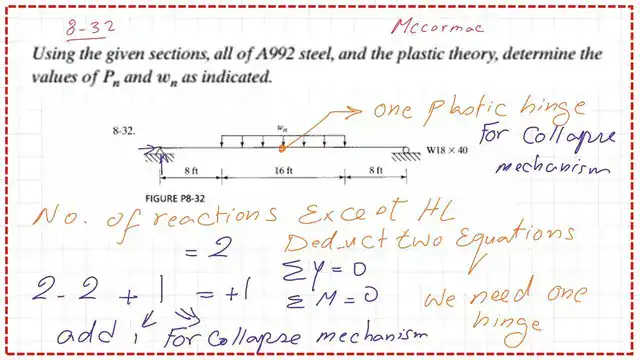 8-32 Mccormac
Using the given sections, all of A992 steel, and the plastic theory, determine the
values of Pn and wn as indicated.
one plastic hinge
For Collapse
mechanism
8-32.
wn
W18 × 40
8 ft 16 ft 8 ft
FIGURE P8-32
No. of reactions Except HL
= 2 Deduct two Equations
ΣY = 0
2 - 2 + 1 = +1 ΣM = 0 we need one
hinge
add 1 For Collapse mechanism